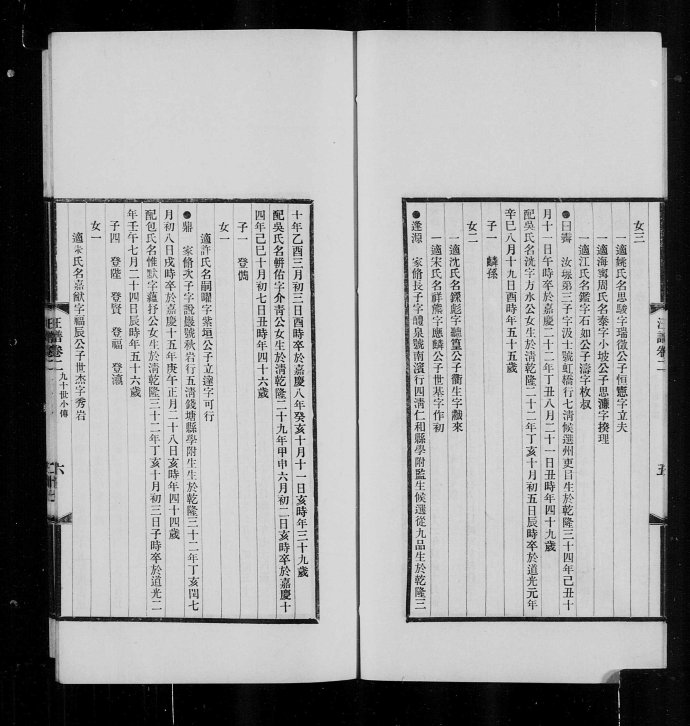 女三
適姚氏名思駿字瑞徵公子恒悳字立夫
一適海寗周氏名泰字小坡公子思濂字揆理
一適江氏名鑑字石如公子濤字枚叔
●日壽 汝瑔第三子字汲士號虹橋行七清候選州吏目生於乾隆三十四年己丑十
月十一日午時卒於嘉慶二十二年丁丑八月二十一日丑時年四十九歲
配吳氏名洸字方水公女生於清乾隆三十二年丁亥十月初五日辰時卒於道光元年
辛巳八月十九日酉時年五十五歲
子一 麟孫
女二
一適沈氏名鏍彪字聽篁公子衢生字黻來
一適宋氏名祥熊字應麟公子世基字作初
●逢源 家脩長子字醴泉號南濱行四清仁和縣學附監生候選從九品生於乾隆三
十年乙酉三月初三日酉時卒於嘉慶八年癸亥十月十一日亥時年三十九歲
配吳氏名輧佑字介青公女生於清乾隆二十九年甲申六月初二日亥時卒於嘉慶十
四年己巳十月初七日丑時年四十六歲
子一 登儁
女一
適許氏名嗣曜字紫垣公子立逵字可行
●鼎 家脩次子字說巖號秋岩行五清錢塘縣學附生生於乾隆三十二年丁亥閏七
月初八日戌時卒於嘉慶十五年庚午正月二十八日亥時年四十四歲
配包氏名惟默字蘊抒公女生於清乾隆三十二年丁亥十月初三日子時卒於道光二
年壬午七月二十四日辰時年五十六歲
子四 登陞 登賢 登福 登瀛
女一
適朱氏名嘉猷字福辰公子世杰字秀岩
汪譜卷二
九十世小傳
六
汪譜卷二
五